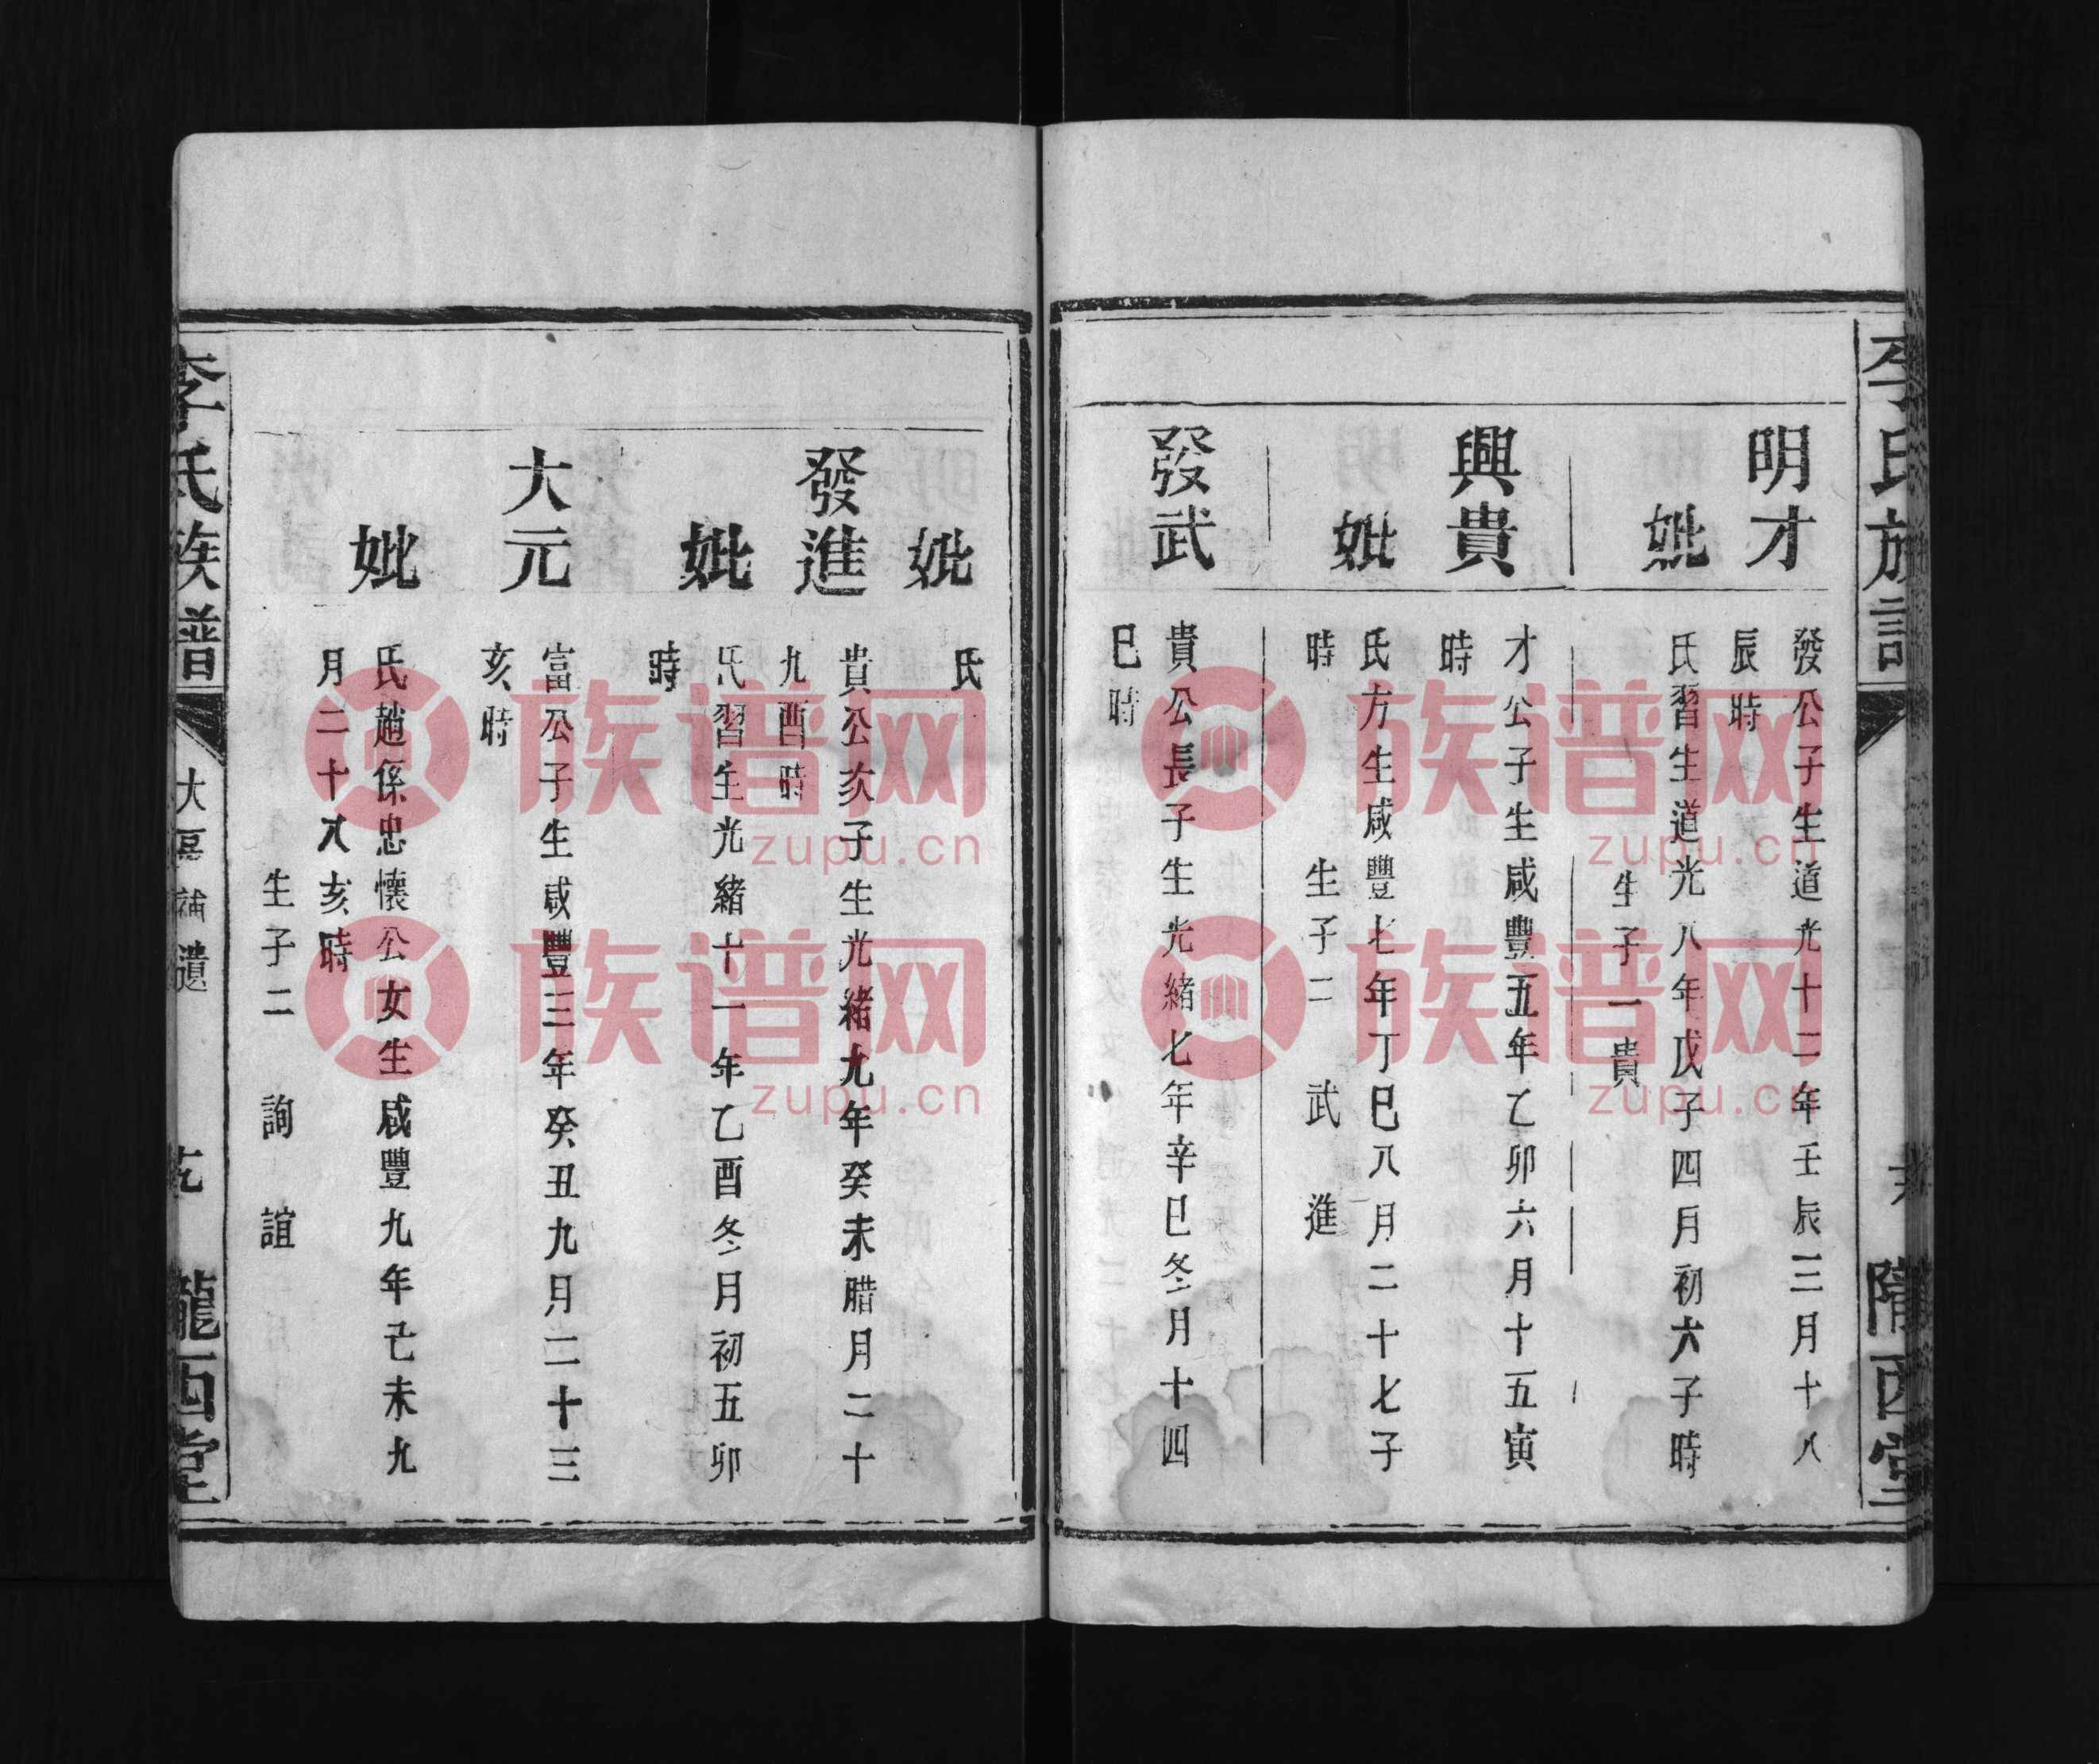 李氏族譜
隴西堂
明才
發公子生道光十二年壬辰三月十八
辰時
妣
氏習生道光八年戊子四月初六子時
生子一貴
興貴
才公子生咸豐五年乙卯六月十五寅
時
妣
氏方生咸豐七年丁巳八月二十七子
時
生子二 武 進
發武
貴公長子生光緒七年辛巳冬月十四
巳時
妣
氏
發進
貴公次子生光緒九年癸未腊月二十
九酉時
妣
氏習生光緒十一年乙酉冬月初五卯
時
大元
富公子生咸豐三年癸丑九月二十三
亥時
妣
氏趙係忠懷公女生咸豐九年己未九
月二十八亥時
生子二 詢 誼
李氏族譜
大 補遺
隴西堂
族谱网
zupu.cn
族谱网
zupu.cn
族谱网
zupu.cn
族谱网
zupu.cn